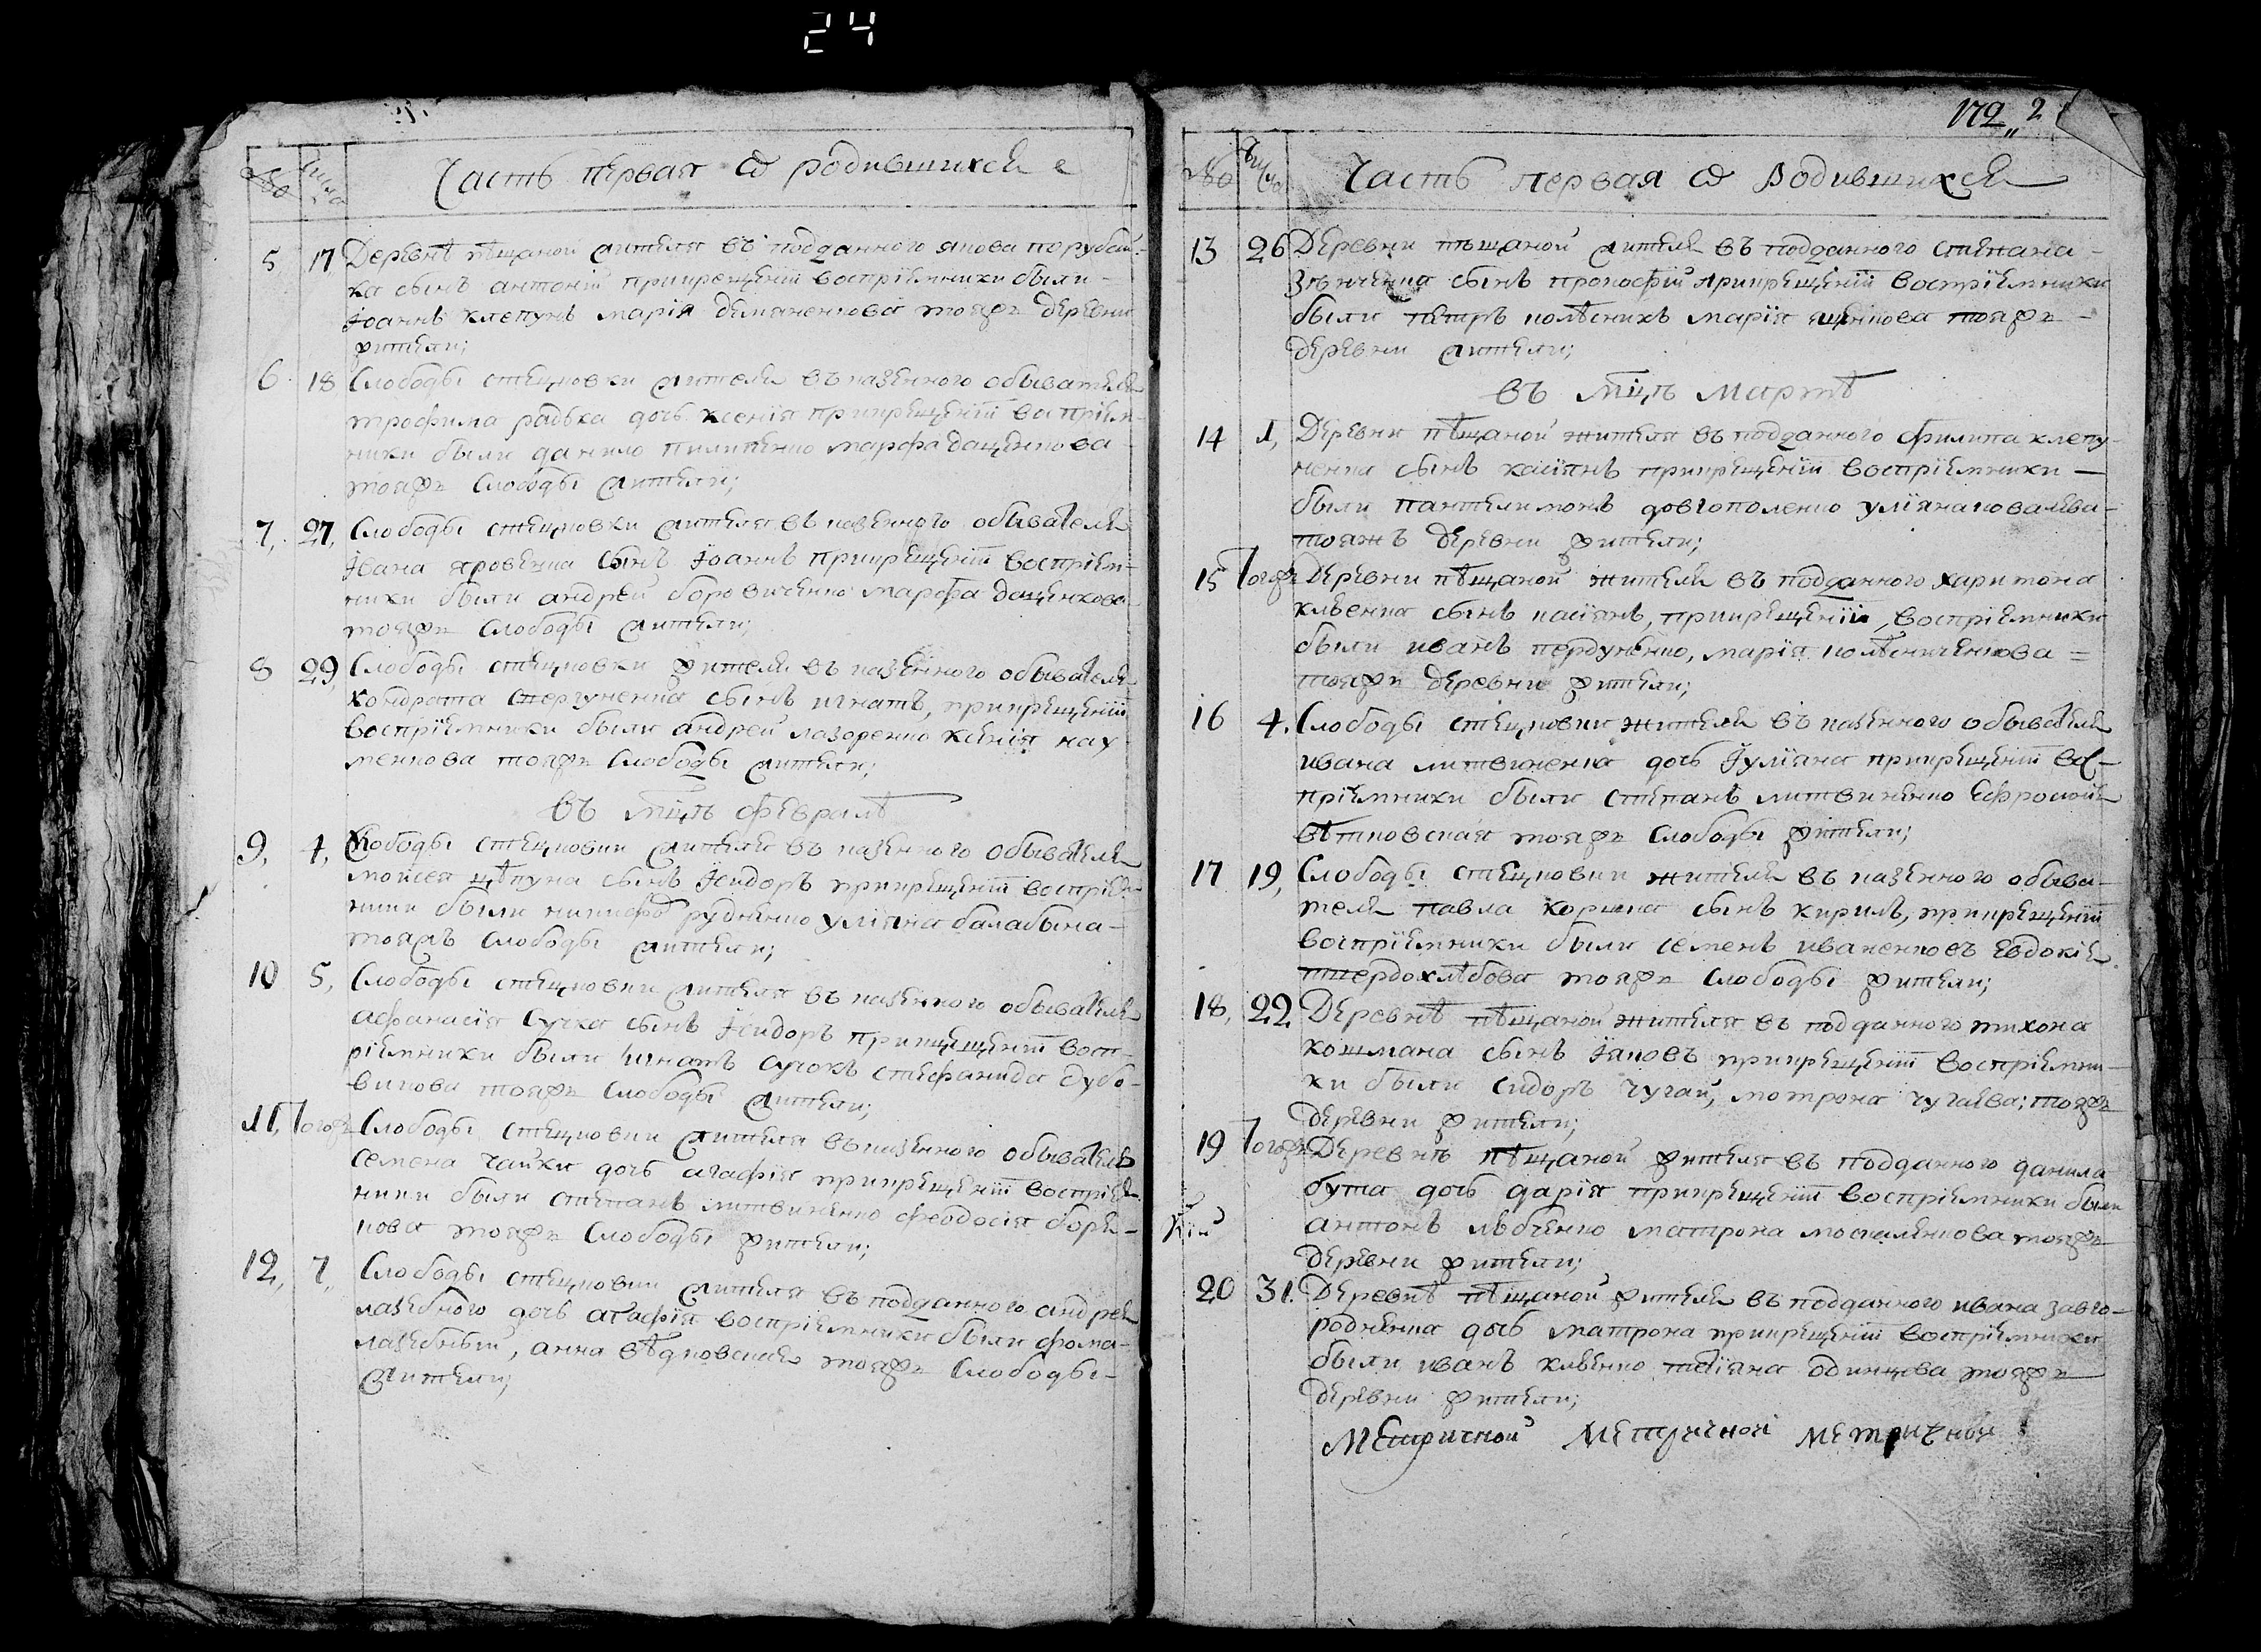 24
№ числа Часть первая ѿ родившихся
5 17 Деревнѣ пѣщаной жителя въ подданного якова порубай-
ка сынъ антоній прикрещеніи воспріемники были
Іоаннъ клепунъ марія демяненкова тояжъ деревни
жители;
6 18 Слободы стецковки жителя въ казенного обывателя
трофима радька дочь ксенія прикрещеніи воспріем-
ники были данило пилипенко марфа даценкова
тояжъ слободы жители;
7, 27, Слободы стецковки жителя въ казенного обывателя
Івана яровенка сынъ Іоаннъ прикрещеніи воспріем-
ники были андрей боровиченко марфа даценкова
тояжъ слободы жители;
8 29, Слободы стецковки жителя въ казенного обывателя
кондрата сынъ игнатъ, прикрещеніи
воспріемники были андрей лазоренко ксенія нау-
менкова тояжъ слободы жители;
въ мцѣ февралѣ
9, 4, Слободы стецковки жителя въ казенного обывателя
мойсея цѣпуна сынъ Ісидоръ прикрещеніи воспріем-
ники были никифоръ рудненко уліяна балабына
тояжъ слободы жители;
10 5, Слободы стецковки жителя въ казенного обывателя
афанасія сучка сынъ Ісидоръ прикрещеніи восп-
ріемники были игнатъ сучокъ стефанида дубо-
викова тояжъ слободы жители;
11, тогожъ Слободы стецковки жителя въ казенного обывателя
семена чайки дочь агафія прикрещеніи воспріем-
ники были степанъ литвиненко феодосія
тояжъ слободы жители;
12, 7, Слободы стецковки жителя въ подданного андрея
лазебного дочь агафія воспріемники были фома
лазебный, анна тояжъ слободы
жители;
172 2
№ число Часть первая ѿ родившихся
13 26 Деревни пѣщаной жителя въ подданного степана
сынъ прокофій прикрещеніи воспріемники
были петръ колѣсникъ марія тояжъ
деревни жители;
въ мцѣ мартѣ
14 1, Деревни пѣщаной жителя въ подданного филипа клепу-
ненка сынъ касіянъ прикрещеніи воспріемники
были пантелимонъ довгополенко уліяна ковалева
тояжъ деревни жители;
15 тогожъ Деревни пѣщаной жителя въ подданного харитона
клвенка сынъ касіянъ, прикрещеніи, воспріемники
были иванъ пердуненко, марія колѣсниченкова
тояжъ деревни жители;
16 4. Слободы стецковки жителя въ казенного обывателя
ивана литвиненка дочь Іуліяна прикрещеніи вос-
пріемники были степанъ литвиненко Ефросинія
тояжъ слободы жители;
17 19, Слободы стецковки жителя въ казенного обыва-
теля павла коржа сынъ кирилъ, прикрещеніи
воспріемники были семенъ иваненковъ Евдокія
твердохлѣбова тояжъ слободы жители;
18, 22 Деревнѣ пѣщаной жителя въ подданного тихона
кошмана сынъ Іяковъ прикрещеніи воспріемни-
ки были сидоръ чугай, мотрона чугаева; тояжъ
деревни жители;
19 тогожъ Деревнѣ пѣщаной жителя въ подданного данила
бута дочь дарія прикрещеніи воспріемники были
антонъ матрона москаленкова тояжъ
деревни жители;
20 31. Деревнѣ пѣщаной жителя въ подданного ивана завго-
родненка дочь матрона прикрещеніи воспріемники
были иванъ клвенко татіяна одинцова тояжъ
деревни жители;
Метричной метричной метричной